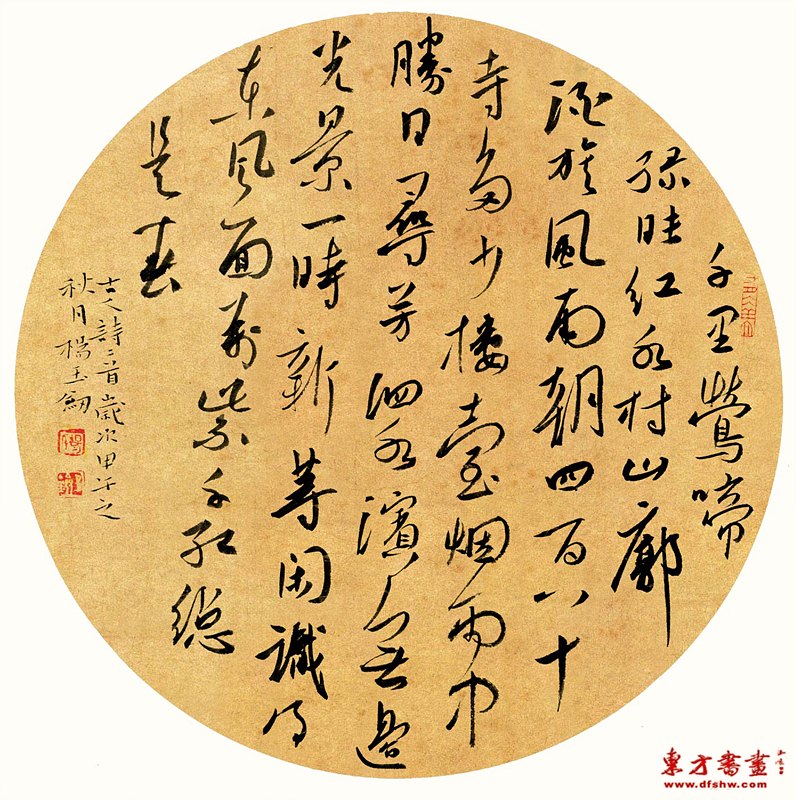 千里鶯啼
綠映红水村山廓
酒旗風南朝四百八十
寺多少樓臺烟雨中
勝日尋芳泗水濱無邊
光景一時新等闲識得
東風面萬紫千紅總
是春
古人詩二首歲次甲午之
秋月楊玉劍
東方書畫
www.dfshw.com